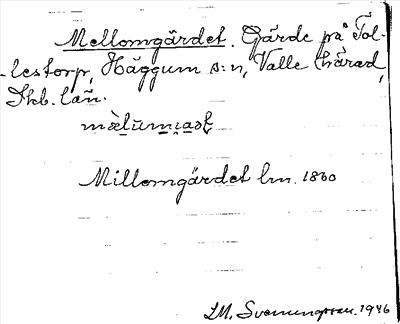 Mellomgärdet. Gärde på Tol-
lestorp, Häggum s:n, Valle härad,
Skb. län.
Millomgärdet lm. 1860
LM. Svenungsson. 1946